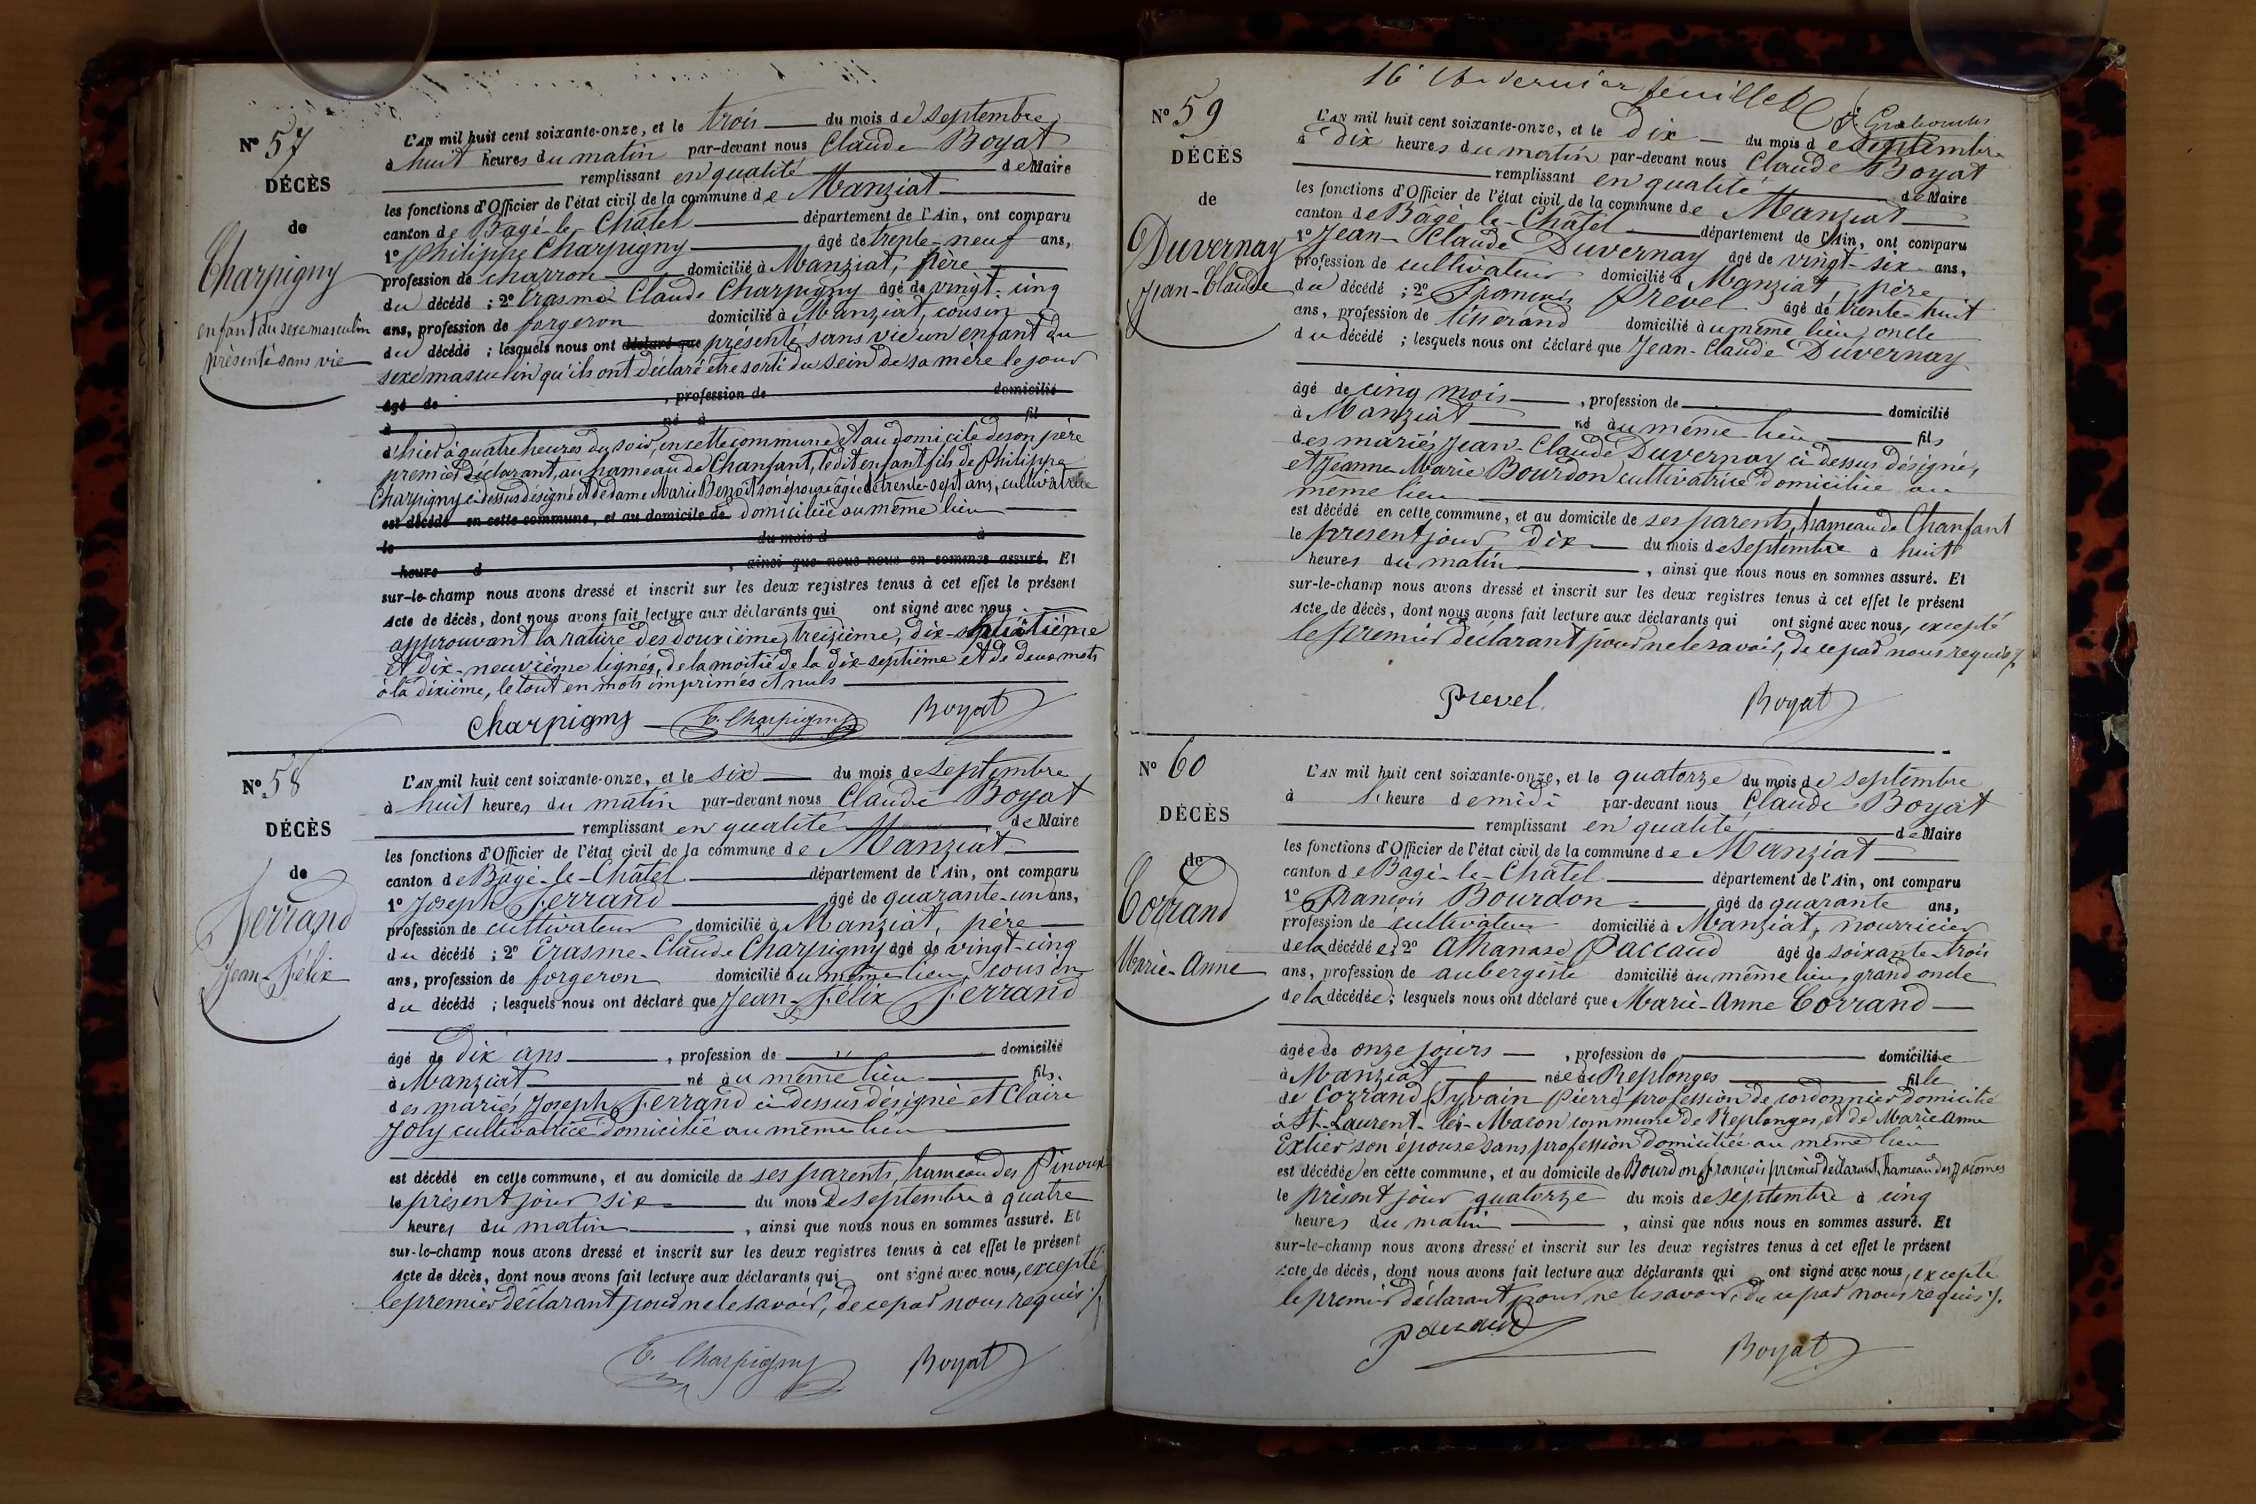 N° 57
DÉCÈS
de
Charpigny
enfant du sexe masculin
présenté sans vie
L'AN mil huit cent soixante-onze, et le trois du mois de septembre
à huit heures du matin par-devant nous Claude Boyat
remplissant en qualité de Maire
les fonctions d'Officier de l'état civil de la commune de Manziat
canton de Bagé-le-Châtel département de l'Ain, ont comparu
1° Philippe Charpigny âgé de trente-neuf ans,
profession de charron domicilié à Manziat, père
du décédé ; 2° Erasme Claude Charpigny âgé de vingt-cinq
ans, profession de forgeron domicilié à Manziat, cousin
du décédé ; lesquels nous ont déclaré que présenté sans vie un enfant du
sexe masculin qu'ils ont déclaré être sorti du sein de sa mère le jour
âgé de , profession de domicilié
à né à fil
d'hier à quatre heures du soir, en cette commune et au domicile de son père
premier déclarant, au hameau de Chanfant, ledit enfant fils de Philippe
Charpigny ci-dessus désigné et de dame Marie Benoît son épouse âgée de trente-sept ans, cultivatrice
est décédé en cette commune, et au domicile de domiciliée au même lieu
le du mois d à
heure d , ainsi que nous nous en sommes assuré. Et
sur-le-champ nous avons dressé et inscrit sur les deux registres tenus à cet effet le présent
Acte de décès, dont nous avons fait lecture aux déclarants qui ont signé avec nous
approuvant la rature des douzième, treizième, dix-huitième
et dix-neuvième lignes, de la moitié de la dix-septième et de deux mots
à la dixième, le tout en mots imprimés et nuls
Charpigny E. Charpigny Boyat
N° 58
DÉCÈS
de
Ferrand
Jean-Félix
L'AN mil huit cent soixante-onze, et le six du mois de septembre
à huit heures du matin par-devant nous Claude Boyat
remplissant en qualité de Maire
les fonctions d'Officier de l'état civil de la commune de Manziat
canton de Bagé-le-Châtel département de l'Ain, ont comparu
1° Joseph Ferrand âgé de quarante-un ans,
profession de cultivateur domicilié à Manziat, père
du décédé ; 2° Erasme-Claude Charpigny âgé de vingt-cinq
ans, profession de forgeron domicilié au même lieu, cousin
du décédé ; lesquels nous ont déclaré que Jean-Félix Ferrand
âgé de dix ans , profession de domicilié
à Manziat né au même lieu fils
des mariés Joseph Ferrand ci-dessus désigné et Claire
Joly cultivatrice domiciliée au même lieu
est décédé en cette commune, et au domicile de ses parents, hameau des Pinoux
le présent jour six du mois de septembre à quatre
heures du matin , ainsi que nous nous en sommes assuré. Et
sur-le-champ nous avons dressé et inscrit sur les deux registres tenus à cet effet le présent
Acte de décès, dont nous avons fait lecture aux déclarants qui ont signé avec nous, excepté
le premier déclarant pour ne le savoir, de ce par nous requis
E. Charpigny Boyat
16e et dernier feuillet
N° 59
DÉCÈS
de
Duvernay
Jean-Claude
L'AN mil huit cent soixante-onze, et le dix du mois de septembre
à dix heures du matin par-devant nous Claude Boyat
remplissant en qualité de Maire
les fonctions d'Officier de l'état civil de la commune de Manziat
canton de Bâgé-le-Châtel département de l'Ain, ont comparu
1° Jean-Claude Duvernay âgé de vingt-six ans,
profession de cultivateur domicilié à Manziat, père
du décédé ; 2° François Prevel âgé de trente-huit
ans, profession de tisserand domicilié au même lieu, oncle
du décédé ; lesquels nous ont déclaré que Jean-Claude Duvernay
âgé de cinq mois , profession de domicilié
à Manziat né au même lieu fils
des mariés Jean-Claude Duvernay ci-dessus désigné,
et Jeanne-Marie Bourdon cultivatrice domiciliée au
même lieu
est décédé en cette commune, et au domicile de ses parents, hameau de Chanfant
le présent jour dix du mois de septembre à huit
heures du matin , ainsi que nous nous en sommes assuré. Et
sur-le-champ nous avons dressé et inscrit sur les deux registres tenus à cet effet le présent
Acte de décès, dont nous avons fait lecture aux déclarants qui ont signé avec nous, excepté
le premier déclarant pour ne le savoir, de ce par nous requis
Prevel Boyat
N° 60
DÉCÈS
de
Corrand
Marie-Anne
L'AN mil huit cent soixante-onze, et le quatorze du mois de septembre
à l'heure de midi par-devant nous Claude Boyat
remplissant en qualité de Maire
les fonctions d'Officier de l'état civil de la commune de Manziat
canton de Bagé-le-Châtel département de l'Ain, ont comparu
1° François Bourdon âgé de quarante ans,
profession de cultivateur domicilié à Manziat, nourricier
de la décédée; 2° Athanase Paccaud âgé de soixante-trois
ans, profession de aubergiste domicilié au même lieu, grand oncle
de la décédée; lesquels nous ont déclaré que Marie-Anne Corrand
âgée de onze jours , profession de domiciliée
à Manziat née à Replonges fille
de Corrand (Sylvain Pierre) profession de cordonnier domicilié
à St-Laurent-lès-Macon commune de Replonges, et de Marie Anne
Extier son épouse sans profession domiciliée au même lieu
est décédée en cette commune, et au domicile de Bourdon François premier déclarant, hameau des
le présent jour quatorze du mois de septembre à cinq
heures du matin , ainsi que nous nous en sommes assuré. Et
sur-le-champ nous avons dressé et inscrit sur les deux registres tenus à cet effet le présent
Acte de décès, dont nous avons fait lecture aux déclarants qui ont signé avec nous, excepté
le premier déclarant pour ne le savoir, de ce par nous requis
Paccaud Boyat